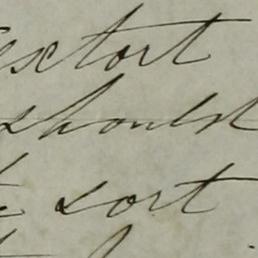 extort
should
sort